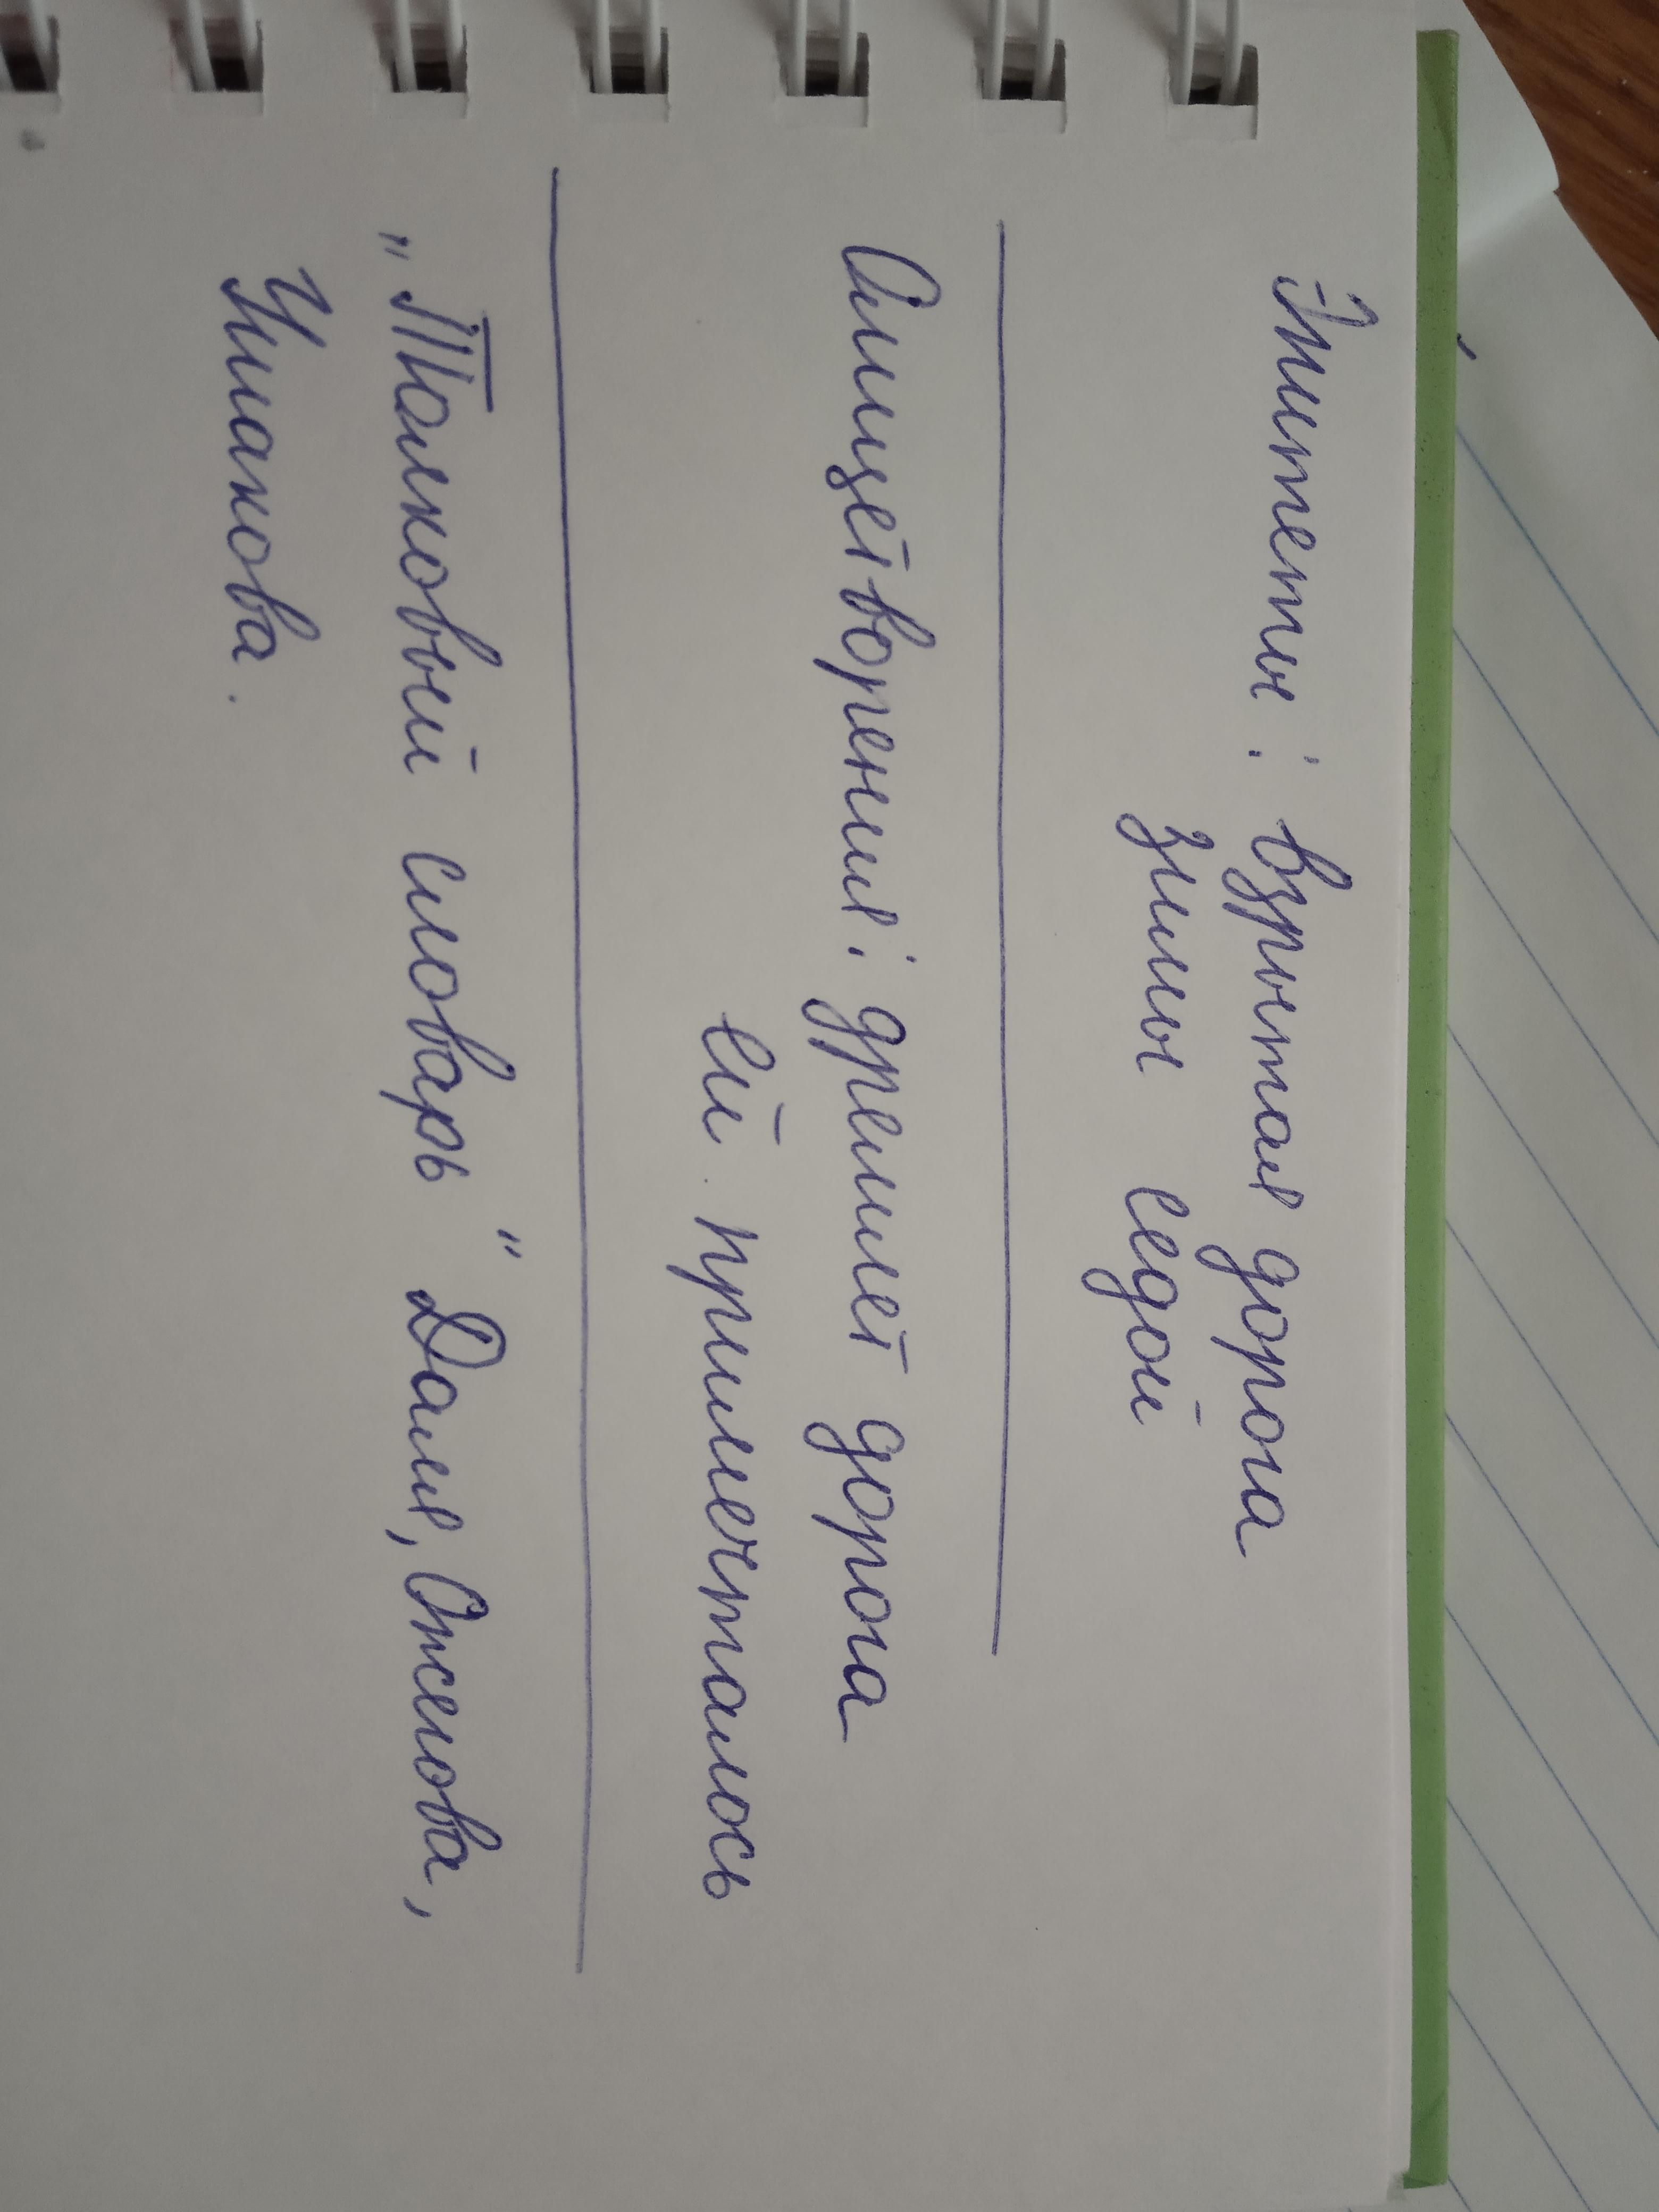 Эпитеты: взрытая дорога
зимы седой
Олицетворения: дремлет дорога
Ей примечталось
"Толковый словарь" Даля, Ожегова,
Ушакова.